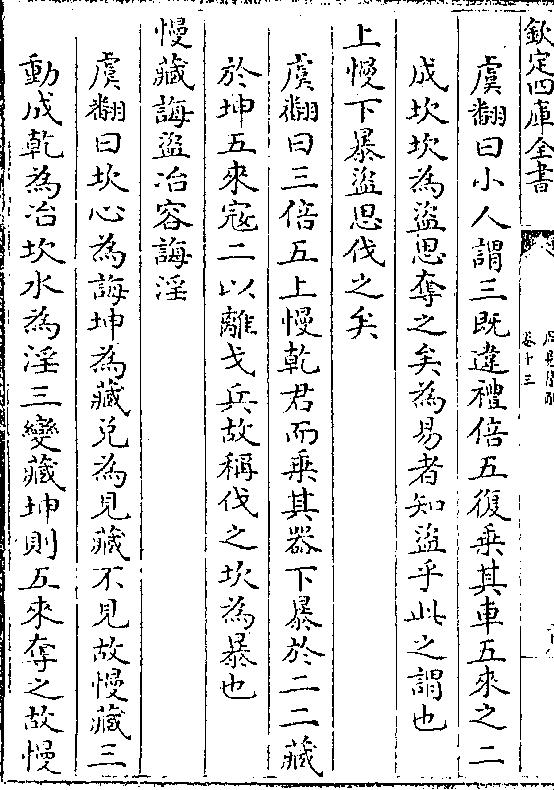 欽定四庫全書
卷十三
虞翻曰小人謂三既違禮倍五復乗其車五來之二
成坎坎為盜思奪之矣為易者知盜乎此之謂也
上慢下暴盜思伐之矣
虞翻曰三倍五上慢乾君而乗其器下暴於二二藏
於坤五來寇二以離戈兵故稱伐之坎為暴也
慢藏誨盜冶容誨淫
虞翻曰坎心為誨坤為藏兌為見藏不見故慢藏三
動成乾為冶坎水為淫三變藏坤則五來奪之故慢